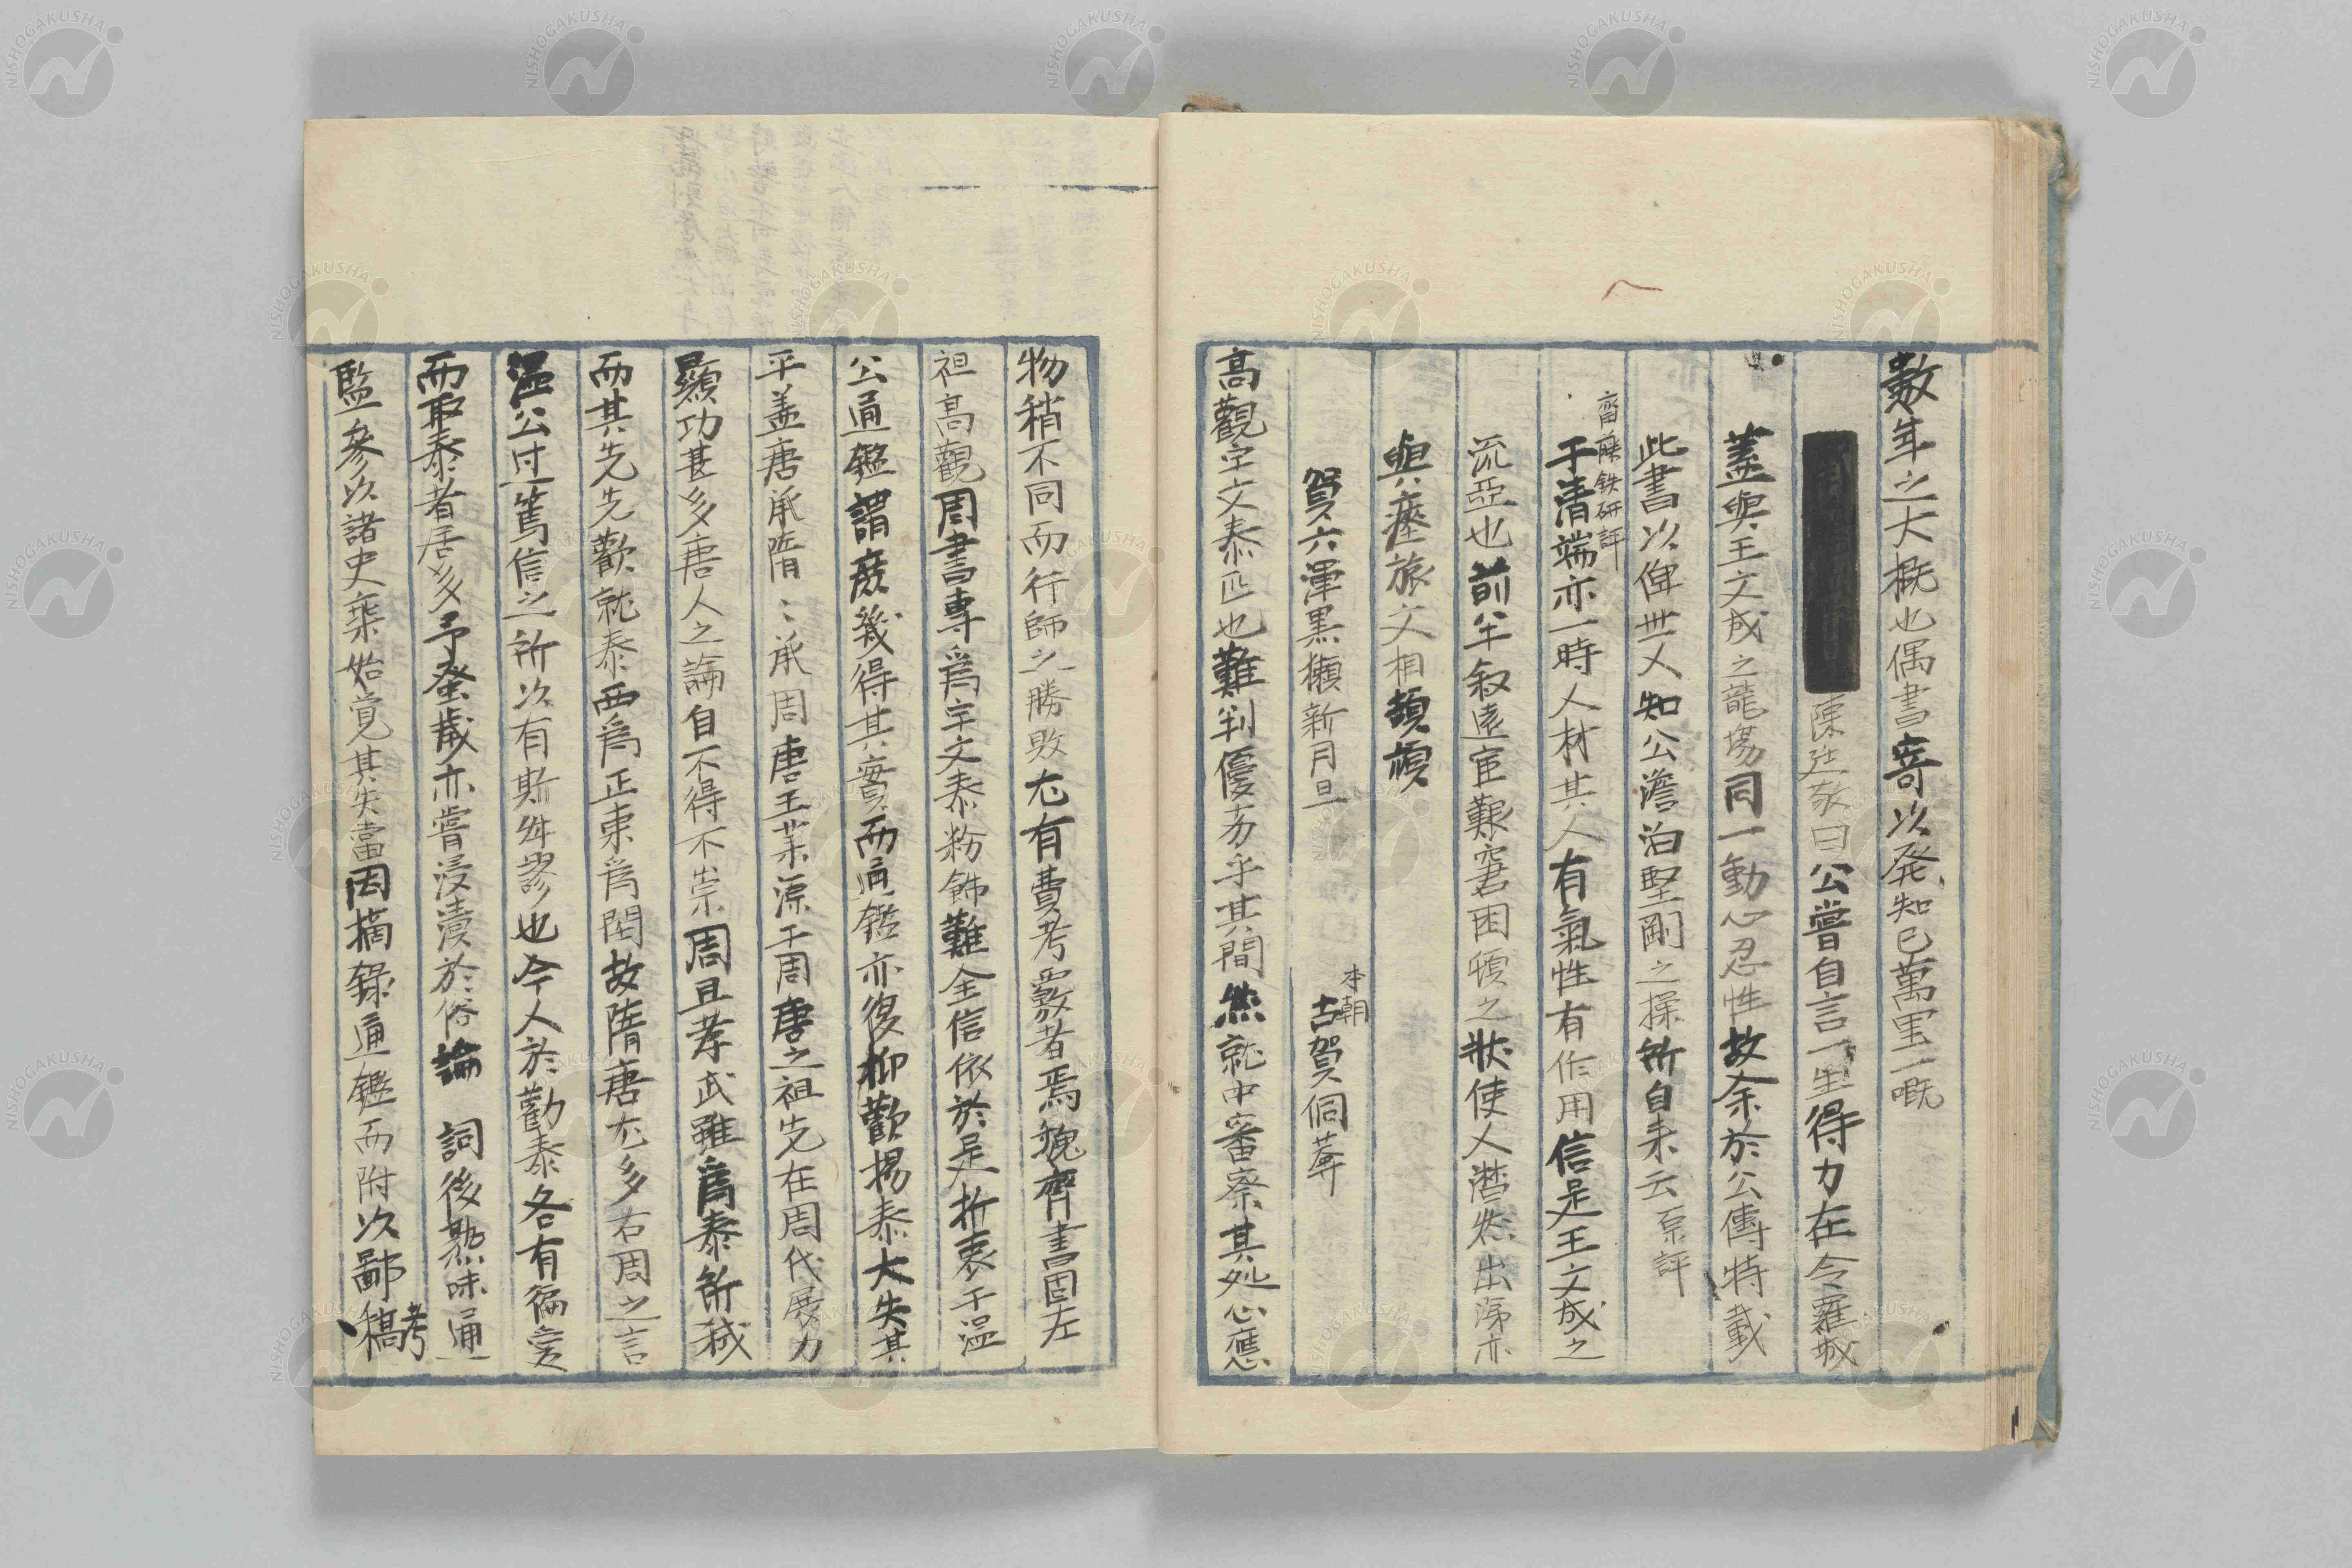 數年之大概也偶書寄以発知己萬里一嘅
陳廷敬曰公嘗自言一生得力在令羅城
蓋與王文成之龍場同一動心忍性故余於公傳特載
此書以俾世人知公澹泊堅剛之操所自来云 原評
齋藤鉄研評
于清端亦一時人材其人有氣性有作用信是王文成之
流亞也前半叙遠宦艱窘困頓之状使人潸然出涕亦
與瘞旅文相頡頏
賀六渾黒獺新月旦
本朝 古賀侗菴
高觀宇文泰匹也難判優劣乎其間然就中審察其処心應
物稍不同而行師之勝敗尤有費考覈者焉魏齊書固左
祖高觀周書專爲宇文泰粉飾難全信依於是折衷于温
公通鑑謂庶幾得其實而通鑑亦復抑歡揚泰大失其
平盖唐承隋〻承周唐王業源于周唐之祖先在周代展力
顯功甚多唐人之論自不得不崇周且孝武雖爲泰所弑
而其先先歡就泰西爲正東爲閏故隋唐尤多右周之言
温公过篤信之所以有斯舛謬也今人於歡泰各有徧愛
而取泰者居多予發歲亦嘗浸漬於俗論 詞後熟味通
監參以諸史乗始覚其失當因摘録通鑑而附次鄙稿
考